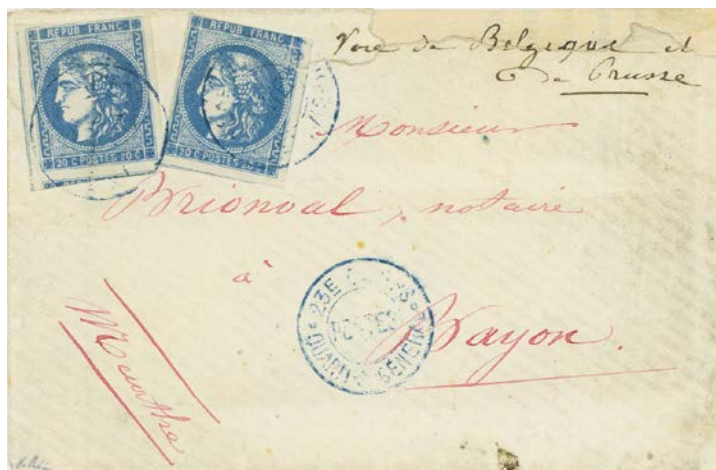 REPUB FRANC
20 C POSTES 20 C
REPUB FRANC
20 C POSTES 20 C
Voie de Belgique et
de Prusse
Monsieur
Brionval, notaire
à
Bayon.
Meurthe
23E CORPS
POSTES
QUARTIER GENERAL